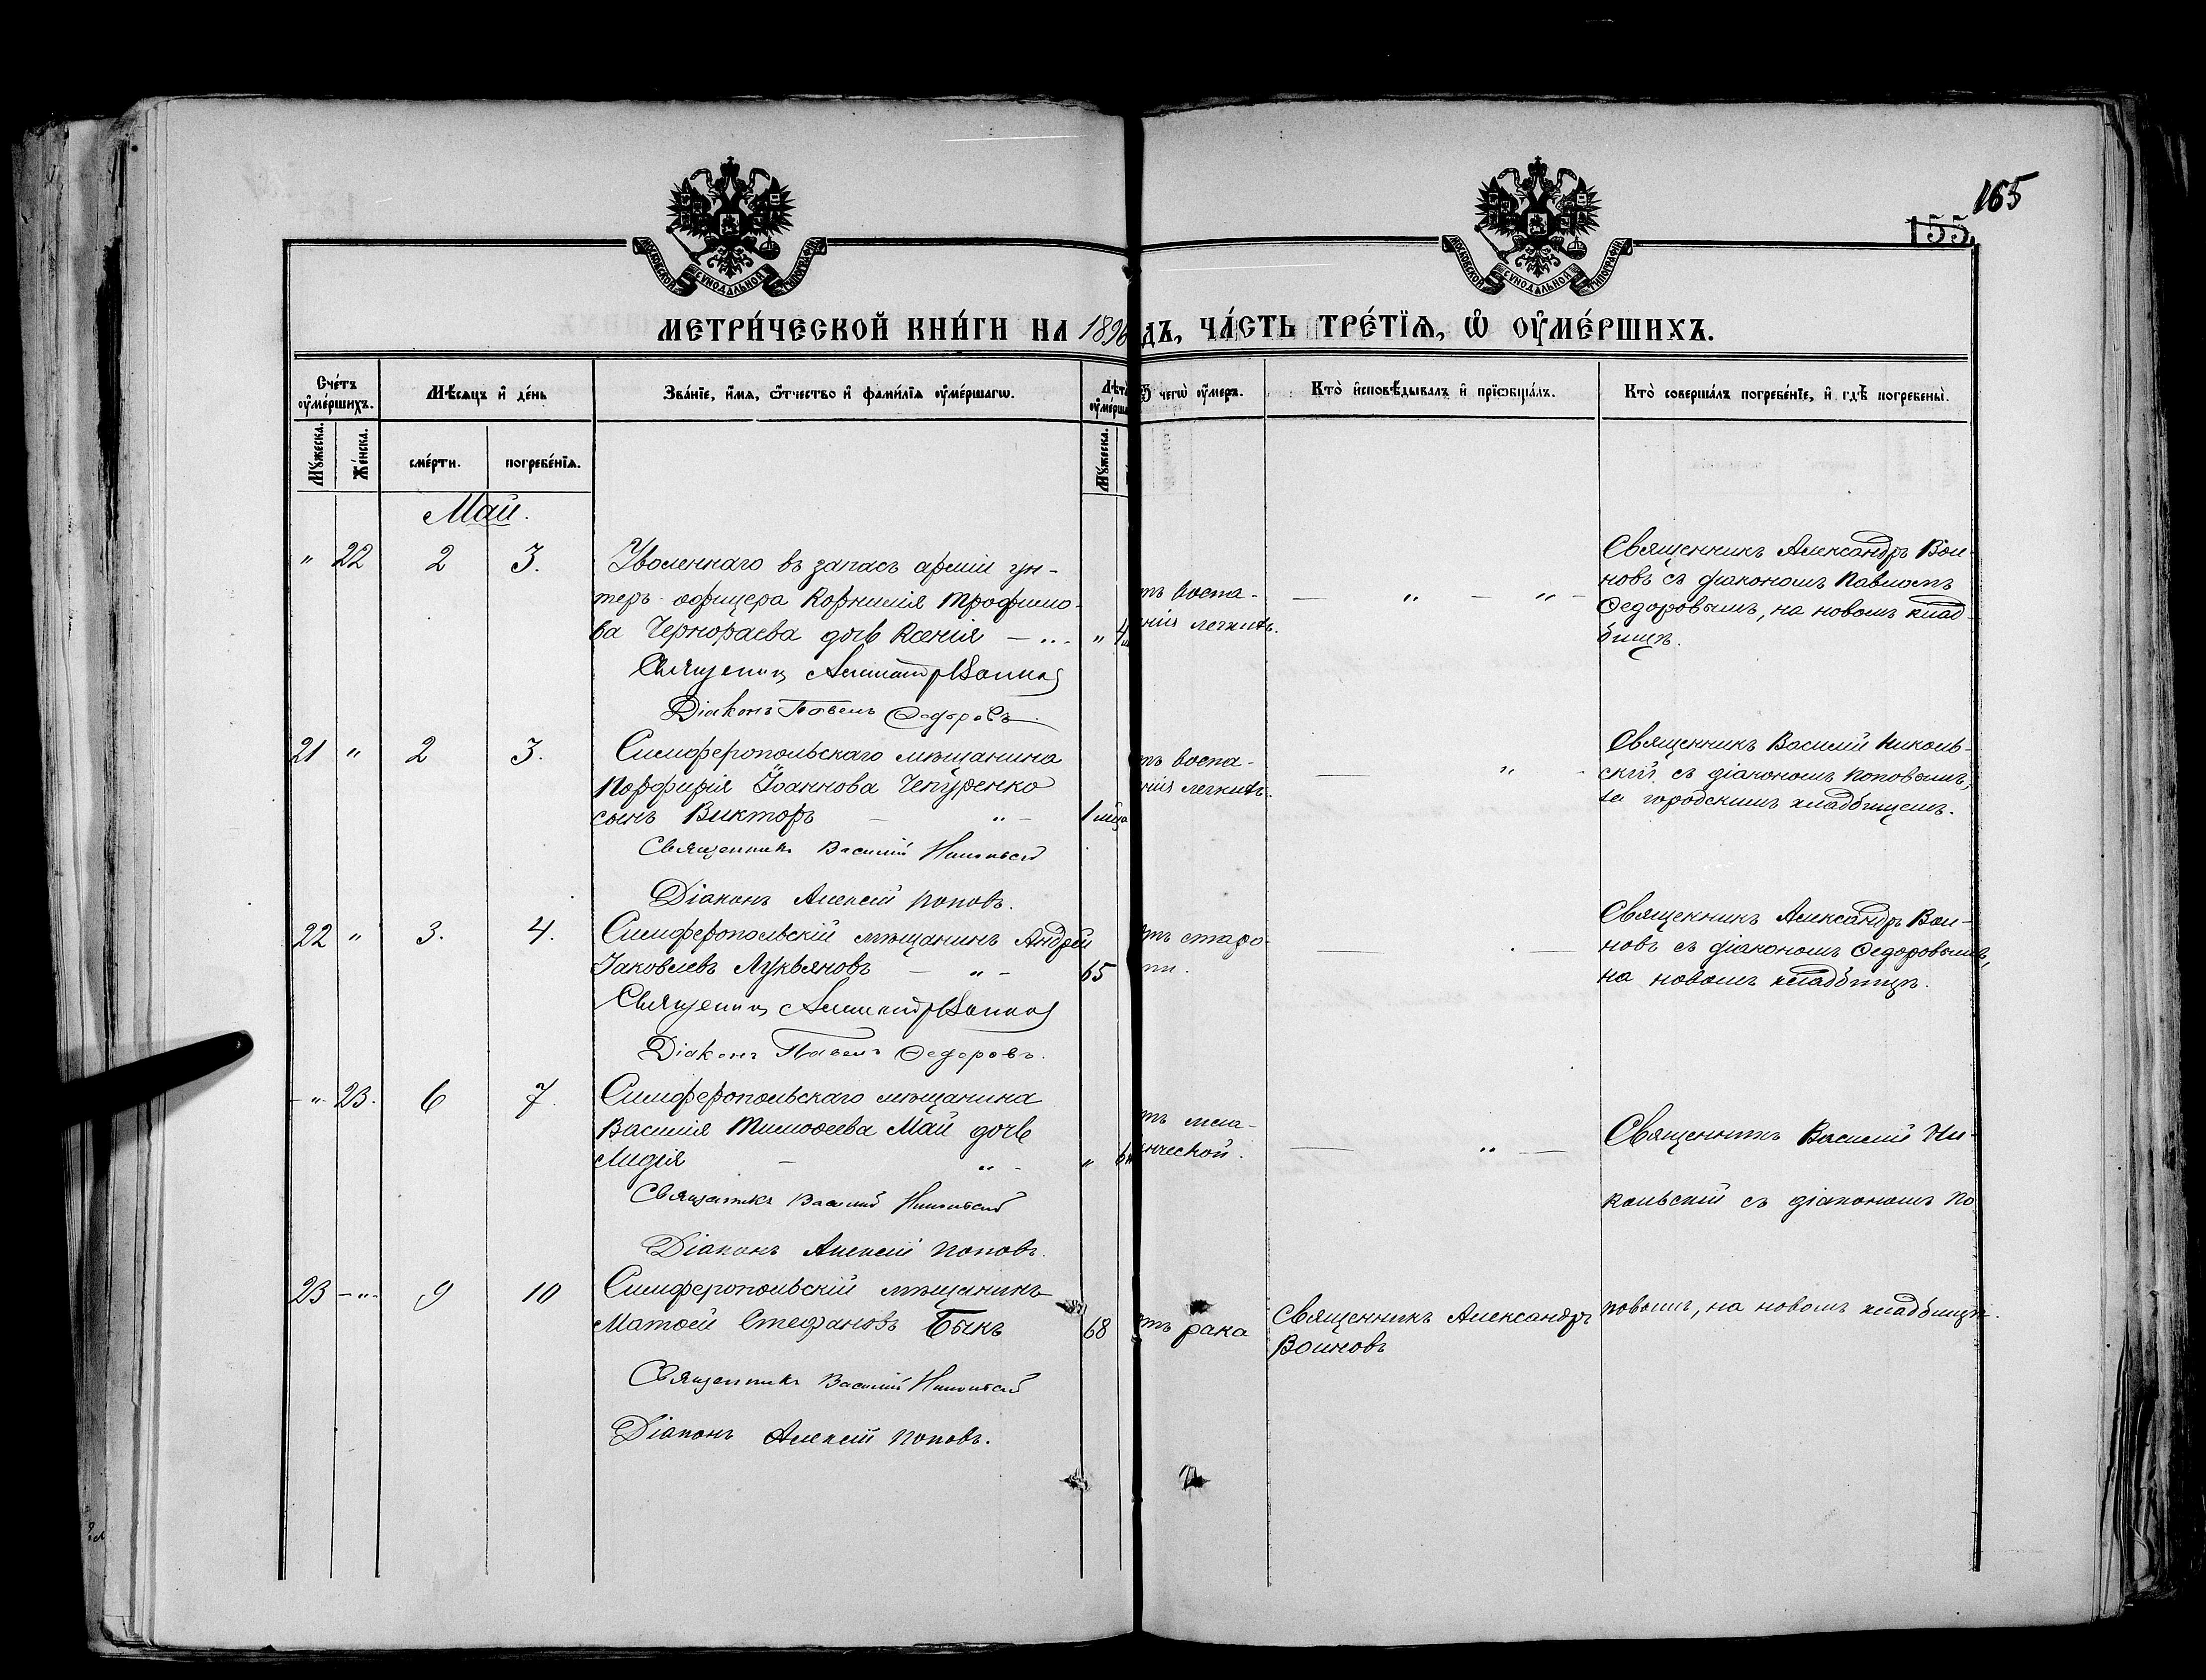 165
155
МОСКОВСКОЙ СѴНОДАЛЬНОЙ ТИПОГРАФІИ
МОСКОВСКОЙ СѴНОДАЛЬНОЙ ТИПОГРАФІИ
МЕТРИ́ЧЕСКОЙ КНИ́ГИ НА 1896
ДЪ, ЧА́СТЬ ТРЕ́ТЇѦ, Ѡ҆ ОУ҆МЕ́РШИХЪ.
Сче́тъ оу҆ме́ршихъ.
Мѣ́сѧцъ и҆ де́нь
Зва́нїе, и҆́мѧ, ѻ҆́тчество и҆ фами́лїѧ оу҆ме́ршагѡ.
Лѣт
оу҆мерш
Ѿ чегѡ̀ оу҆́меръ.
Кто̀ и҆сповѣ́дывалъ и҆ прїѡбща́лъ.
Кто̀ соверша́лъ погребе́нїе, и҆ гдѣ̀ погребены̀.
Мꙋ́жеска.
Же́нска.
сме́рти.
погребе́нїѧ.
Мꙋ́жеска.
Май.
" 22 2 3.
Уволеннаго въ запасъ арміи ун-
теръ-офицера Корнилія Трофимо-
ва Чернораева дочь Ксенія — " - " 4
Священникъ Александръ Воинов
Діаконъ Павелъ Ѳедоровъ.
тъ воспа-
нія легкихъ.
— " — " —
Священникъ Александръ Вои-
новъ съ діакономъ Павломъ
Ѳедоровымъ, на новомъ клад-
бищѣ.
21 " 2 3.
Симферопольскаго мѣщанина
Порфирія Іоаннова Чепуренко
сынъ Викторъ — " — 1 мѣся
Священникъ Василій Никольскій
Діаконъ Алексѣй Поповъ.
тъ воспа-
нія легкихъ.
— " —
Священникъ Василій Николь-
скій съ діакономъ Поповымъ,
городскимъ кладбищемъ.
22 " 3. 4.
Симферопольскій мѣщанинъ Андрей
Іаковлевъ Лукьяновъ — " — 65
Священникъ Александръ Воинов
Діаконъ Павелъ Ѳедоровъ.
тъ старо-
ти.
Священникъ Александръ Вои-
новъ съ діакономъ Ѳедоровымъ,
на новомъ кладбищѣ.
" 23. 6 7.
Симферопольскаго мѣщанина
Василія Тимоѳеева Май дочь
Лидія — " — " 6
Священникъ Василій Никольскій
Діаконъ Алексѣй Поповъ.
нческой.
— " —
Священникъ Василій Ни-
кольскій съ діакономъ По
повымъ, на новомъ кладбищѣ.
23 — " — 9 10
Симферопольскій мѣщанинъ
Матѳей Стефановъ Быкъ 68
Священникъ Василій Никольскій
Діаконъ Алексѣй Поповъ.
тъ рака
Священникъ Александръ
Воиновъ